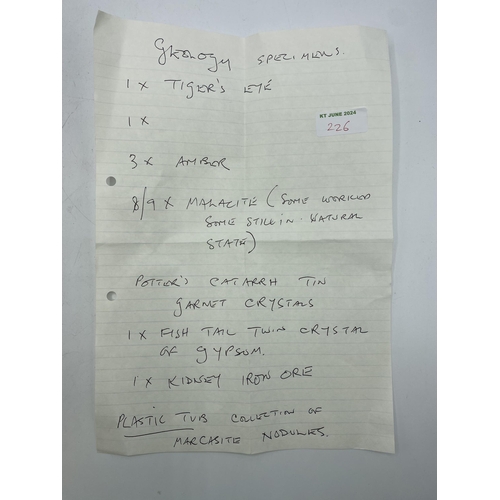 GEOLOGY SPECIMENS.
1 X TIGER'S EYE
1 X
KT JUNE 2024
226
3 X AMBER
8/9 X MALACITE (SOME WORKED
SOME STILL IN NATURAL
STATE)
POTTER'S CATARRH TIN
GARNET CRYSTALS
1 X FISH TAIL TWIN CRYSTAL
OF GYPSUM.
1 X KIDNEY IRON ORE
PLASTIC TUB COLLECTION OF
MARCASITE NODULES.